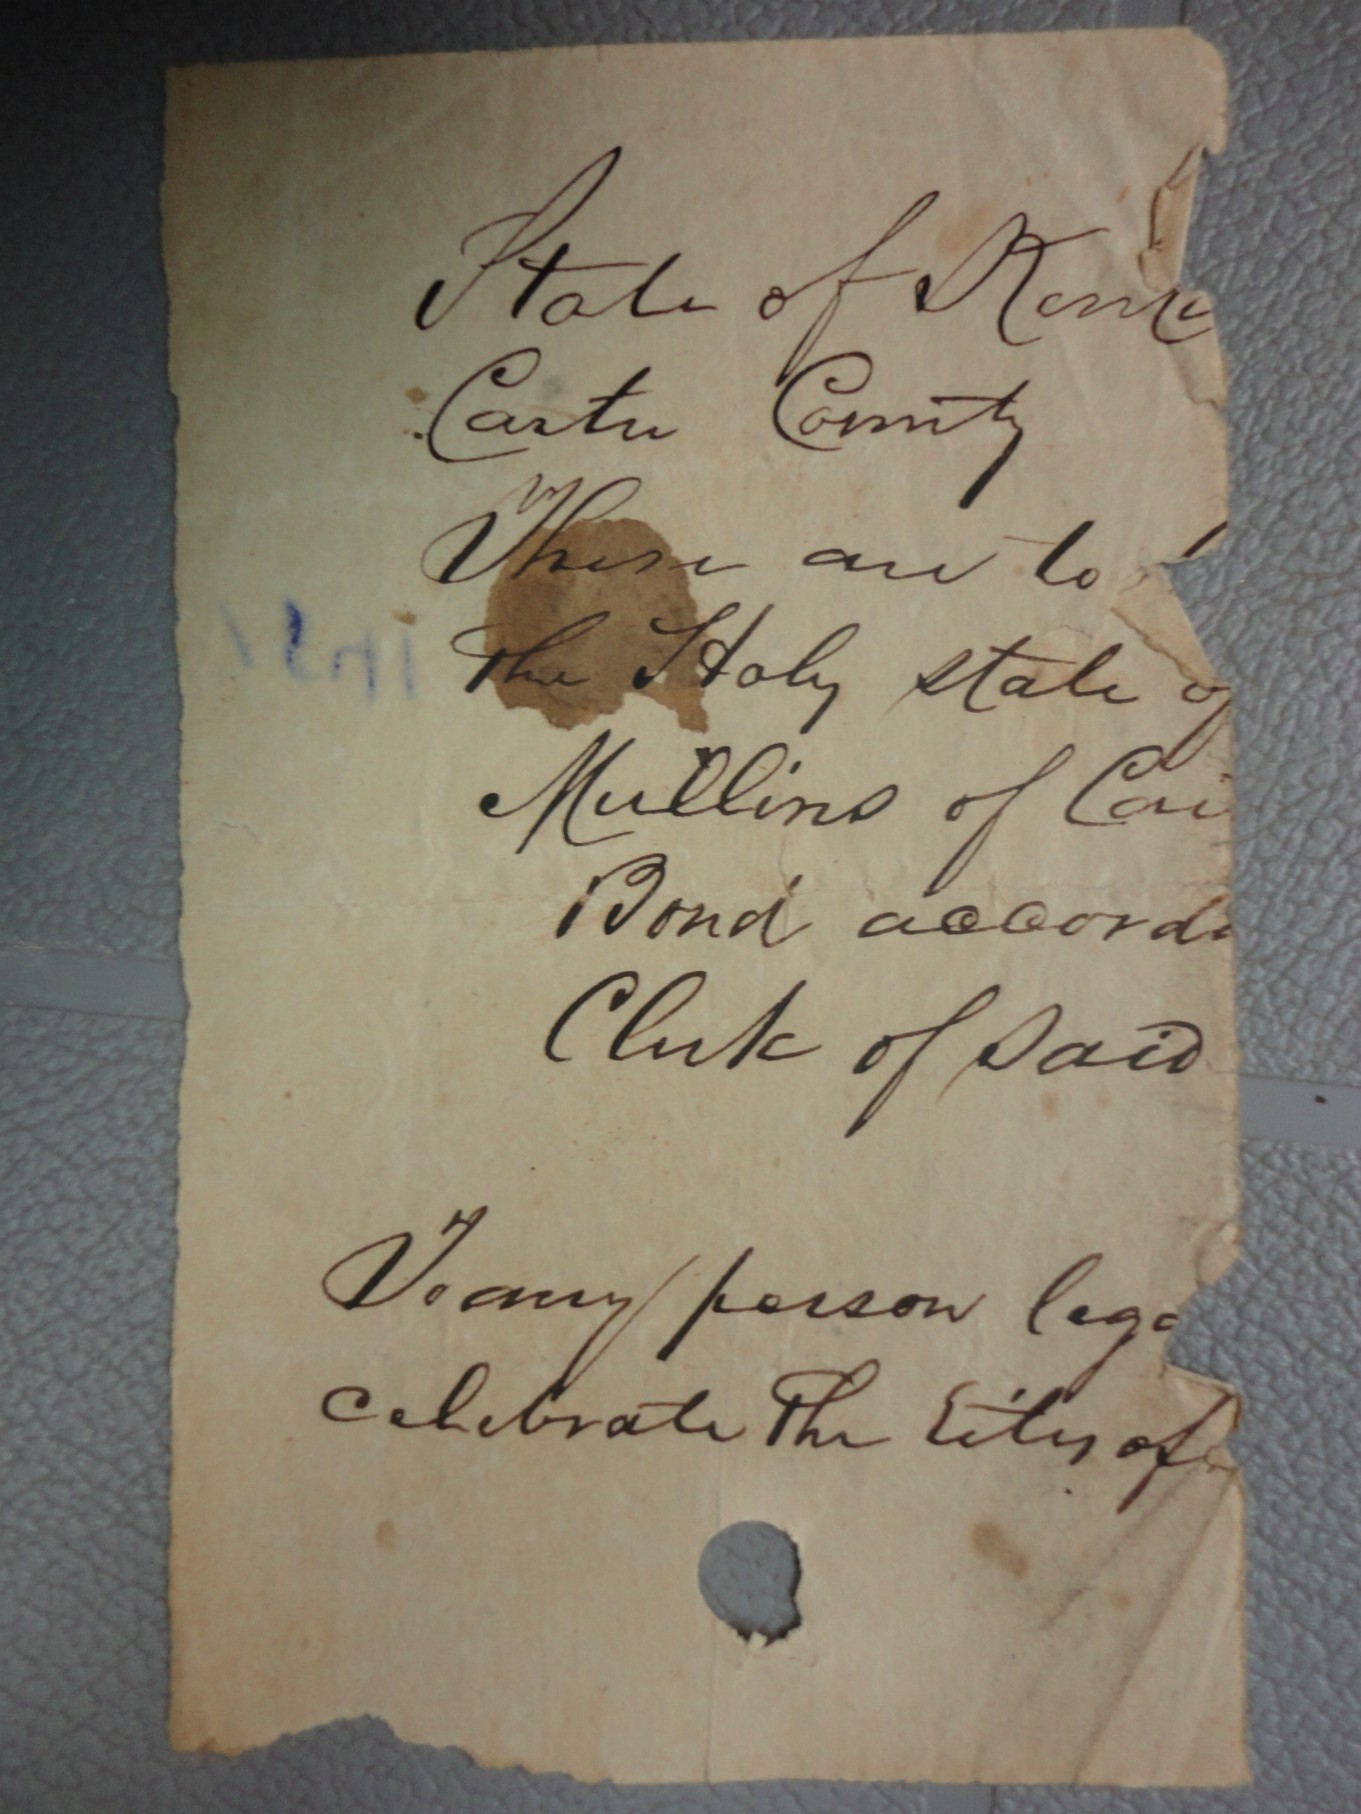 State of Kentu
Carter County
These are to
the Holy state of
Mullins of Car
Bond accordi
Clerk of said
To any person lega
celebrate the Eity of